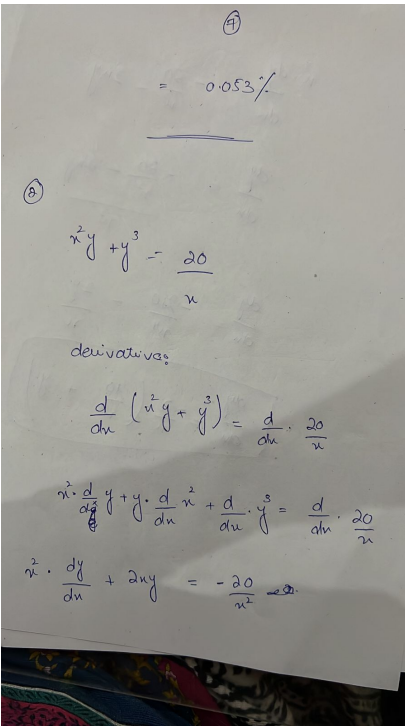 7
= 0.053%
2
x²y + y³ = 20/x
derivative:
d/dx (x²y + y³) = d/dx · 20/x
x² · d/dx y + y · d/dx x² + d/dx · y³ = d/dx · 20/x
x² · dy/dx + 2xy = -20/x²